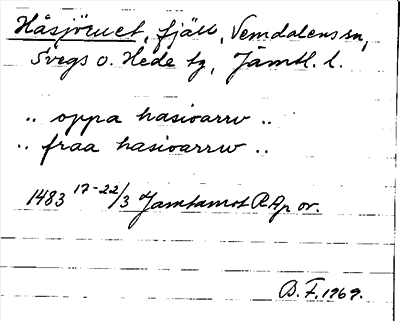 Håsjöruet, fjäll, Vemdalens sn,
Svegs o. Hede tg, Jämtl. l.
.. oppa hasioarrw ..
.. fraa hasioarrw ..
1483 17-22/3 Jamtamot RAp or.
B. F. 1969.